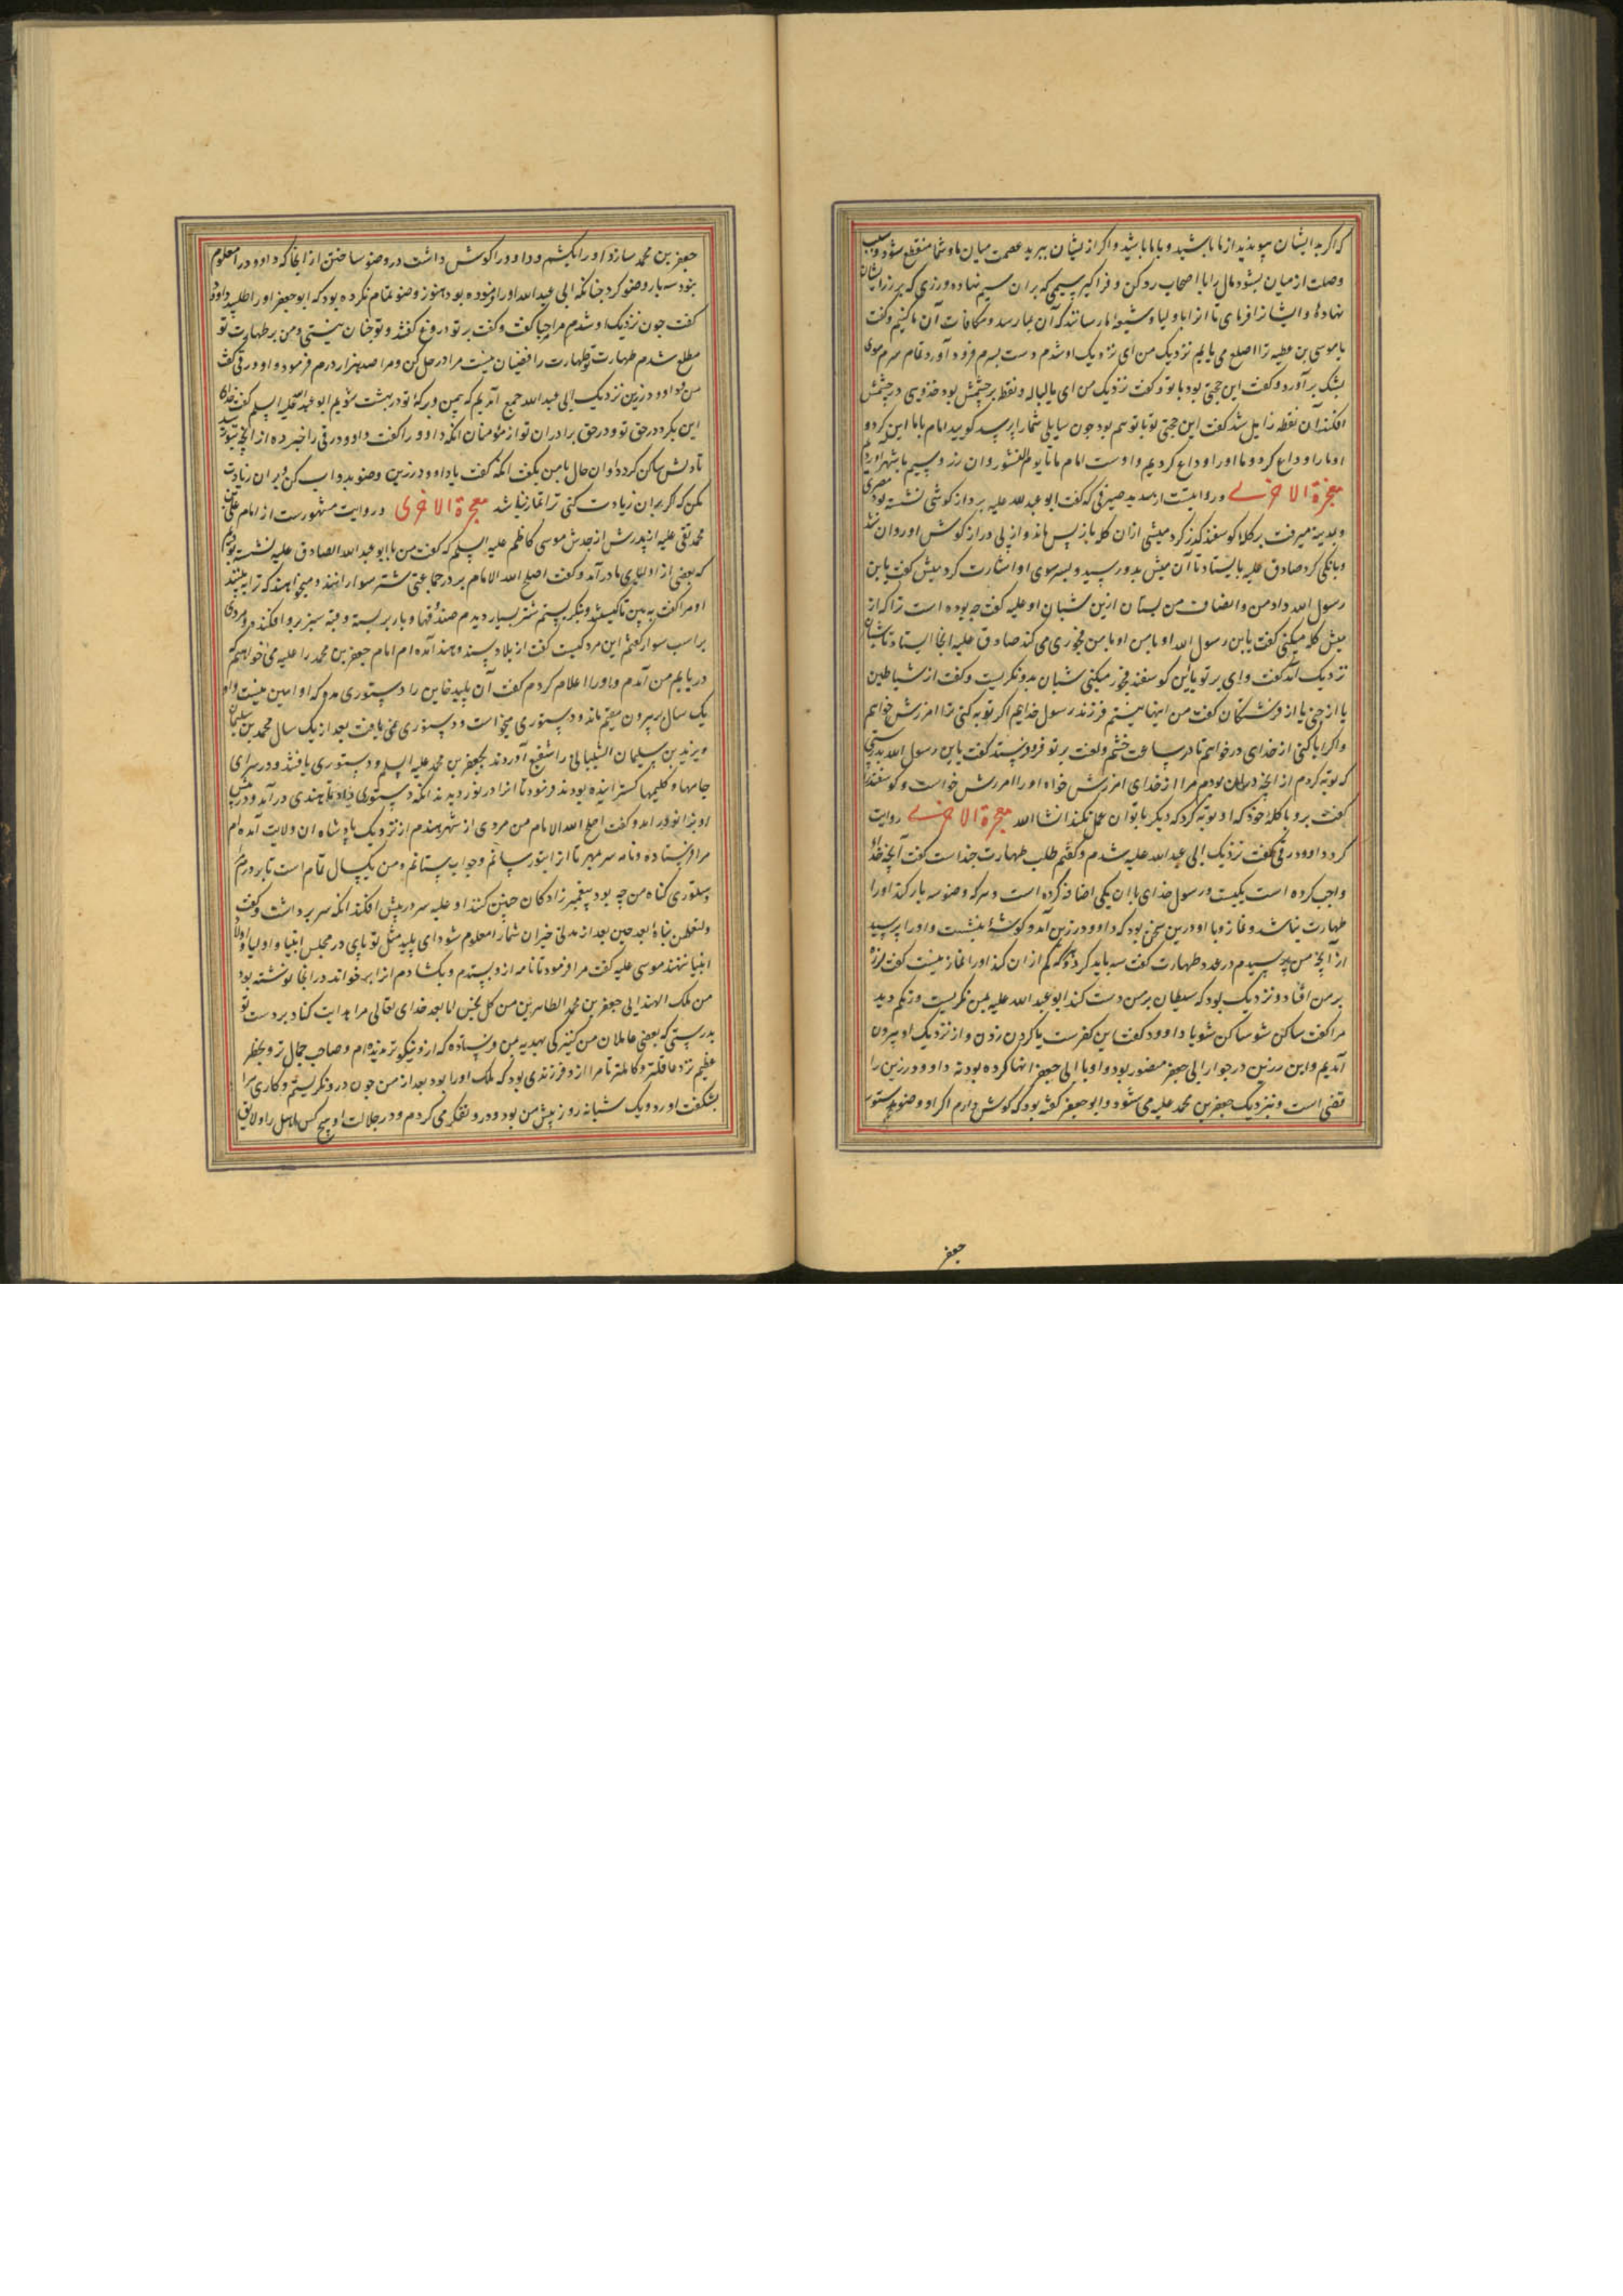 که اگر بدیشان پیوندید از ما باشید و با ما باشید و اگر ازیشان ببرید عصمت میان ما و شما منقطع شود و سبب
وصلت از میان بشود مال را با اصحاب رد کن و فرا گیر سیمی که بران سیم نهاده و رزی که بر زر ایشان
نهاده و ایشانرا فرمای تا از ما و اولیاء و شیعه ما رسانند که آن بما رسد و مکافات آن ما کنیم و گفت
یا موسی بن عطیه ترا اصلع می یابم نزدیک من آی نزدیک او شدم دست بسرم فرود آورد تمام سرم موی
بشک برآورد و گفت این حجتی بود با تو و گفت نزدیک من ای یا لیاله و نقطه بر چشمش بود خدوسی در چشمش
افکند آن نقطه زایل شد گفت این حجتی بود با تو هم بود چون سایلی شما را پرسد گویید امام با ما این کرد و
او ما را وداع کرد و ما او را وداع کردیم و اوست امام ما تا یوم النشور و ان زر و سیم با شهر اوردیم
معجزة الاخری و روایتست از سدید صیرفی که گفت ابو عبدالله علیه بر دراز گوشی نشسته بود مصری
و بمدینه میرفت بر کله گوسفند گذر کرد میشی ازان کله باز پس ماند و از پی دراز گوش او روان شد
و بانگی کرد صادق علیه بایستاد تا آن میش بدو رسید و بسر سوی او اشارت کرد میش گفت یا بن
رسول الله داد من و انصاف من بستان ازین شبان او علیه گفت چه بوده است ترا که از
میش کله میکنی گفت یا بن رسول الله او با من فجوری می کند صادق علیه انجا ایستاد تا شبان
نزدیک آمد گفت وای بر تو باین گوسفند فجور میکنی شبان بدو نگریست و گفت از شیاطین
یا از جنی یا از فرشتگان گفت من اینها نیستم فرزند رسول خدایم اگر توبه کنی ترا امرزش خواهم
و اگر ابا کنی از خدای درخواهم تا در ساعت خشم و لعنت بر تو فرو فرستد گفت یا بن رسول الله بدرستی
که توبه کردم از آنچه در آن بودم مرا از خدای امرزش خواه او را امرزش خواست و گوسفند را
گفت برو با کله خود که او توبه کرد که دیگر با تو آن عمل نکند انشا الله معجزة الاخری روایت
کرد داوود رقی گفت نزدیک ابی عبدالله علیه شدم و گفتم طلب طهارت چند است گفت آنچه خدا
واجب کرده است یکیست و رسول خدای با ان یکی اضافه کرده است و هر که وضو سه بار کند او را
طهارت نباشد و نماز و با او درین سخن بود که داوود زرین آمد و گوشهٔ بنشست و او را پرسید
از آنچه من پرسیدم در عدد طهارت گفت سه باید کرد و هر که کم ازان کند او را نماز نیست گفت لرزه
بر من افتاد و نزدیک بود که شیطان بر من دست کند ابو عبدالله علیه بمن نگریست و رنگم دید
مرا گفت ساکن شو ساکن شو یا داوود گفت این کفرست یا گردن زدن و از نزدیک او بیرون
آمدیم و این زرین در جوار ابی جعفر منصور بود و او با ابی جعفر انها کرده بودند که داوود زرین را
نقنی است و بنزدیک جعفر بن محمد علیه می شود و ابو جعفر گفته بود که گوش دارم اگر او وضو بدستور
جعفر
جعفر بن محمد سازد او را بکشم و داوود را گوش داشت در وضو ساختن از انجا که داوود را معلوم
بنود سه بار وضو کرد چنانکه ابی عبدالله او را فرموده بود هنوز وضو تمام نکرده بود که ابو جعفر او را طلبید داوود
گفت چون نزدیک او شدم مرا مرحبا گفت و گفت بر تو دروغ گفتند و تو چنان نیستی و من بر طهارت تو
مطلع شدم طهارت تو طهارت رافضیان نیست مرا در حل کن و مرا صد هزار درم فرمود و داوود رقی گفت
من و داوود زرین نزدیک ابی عبدالله جمع آمدیم که بیمن و برکه تو در بهشت شویم ابو عبدالله علیه السلم گفت خدای
این بکرد در حق تو و در حق برادران تو از مؤمنان آنکه داوود را گفت داوود رقی را خبر ده از آنچه بتو رسید
تا دلش ساکن گردد او ان حال با من بگفت آنکه گفت یا داوود زرین وضو بدو اب کن و بران زیادت
مکن که اگر بران زیادت کنی ترا نماز نباشد معجزة الاخری و روایت مشهورست از امام علی بن
محمد تقی علیه از پدرش از جدش موسی کاظم علیه السلم که گفت من با ابو عبدالله الصادق علیه نشسته بودم
که بعضی از اولیای ما درآمد و گفت اصلح الله الامام بر در جماعتی شتر سوارانند و میخواهند که ترا ببینند
او مرا گفت ببین تا کیستند بنگریستم شتر بسیار دیدم صندقها و بار بر بسته و قبه سبز برو افکنده و مردی
بر اسب سوار گفتم این مرد کیست گفت از بلاد سند و هند آمده ام امام جعفر بن محمد را علیه می خواهم که
دریابم من آمدم و او را اعلام کردم گفت آن پلید خاین را دستوری مده که او امین نیست و او
یک سال بر بیرون مقیم ماند و دستوری میخواست و دستوری نمی یافت بعد از یک سال محمد بن سلیمان
و یزید بن سلیمان الشیبانی را شفیع آوردند بجعفر بن محمد علیه السلم و دستوری یافتند و در سرای
جامها و گلیمها گسترانیده بودند فرمود تا انرا در نوردیدند آنکه دستوری داد تا هندی درآمد و در پیش
او بزانو در امد و گفت اصلح الله الامام من مردی از شهر هندم از نزدیک پادشاه ان ولایت آمده ام
مرا فرستاده و نامه سر بمهر تا انرا بتو رسانم و جواب بستانم و من یکسال تمام است تا بر درم
دستوری گناه من چه بود پیغمبر زادگان چنین کنند او علیه سر در پیش افکند آنکه سر برداشت و گفت
ولتعلمن نباهٔ بعد حین بعد از مدتی خبر ان شما را معلوم شود ای پلید مثل تو پای در مجلس انبیا و اولیا و اولاد
انبیا ننهند موسی علیه گفت مرا فرمود تا نامه ازو بستدم و بگشادم انرا برخواند در انجا نوشته بود
من ملک الهند الی جعفر بن محمد الطاهرین من کل نجس اما بعد خدای تعالی مرا هدایت کناد بر دست تو
بدرستی که بعضی عاملان من کنیزکی بهدیه بمن فرستاده که ازو نیکوتر ندیده ام و صاحب جمال تر و بخطر
عظیم تر و عاقلتر و کاملتر تا مرا ازو فرزندی بود که ملک او را بود بعد از من چون درو نگریستم و کاری مرا
بشگفت آورد و یک شبانه روز پیش من بود و درو تفکر می کردم و در جلالت او هیچ کس اهل را و لایق